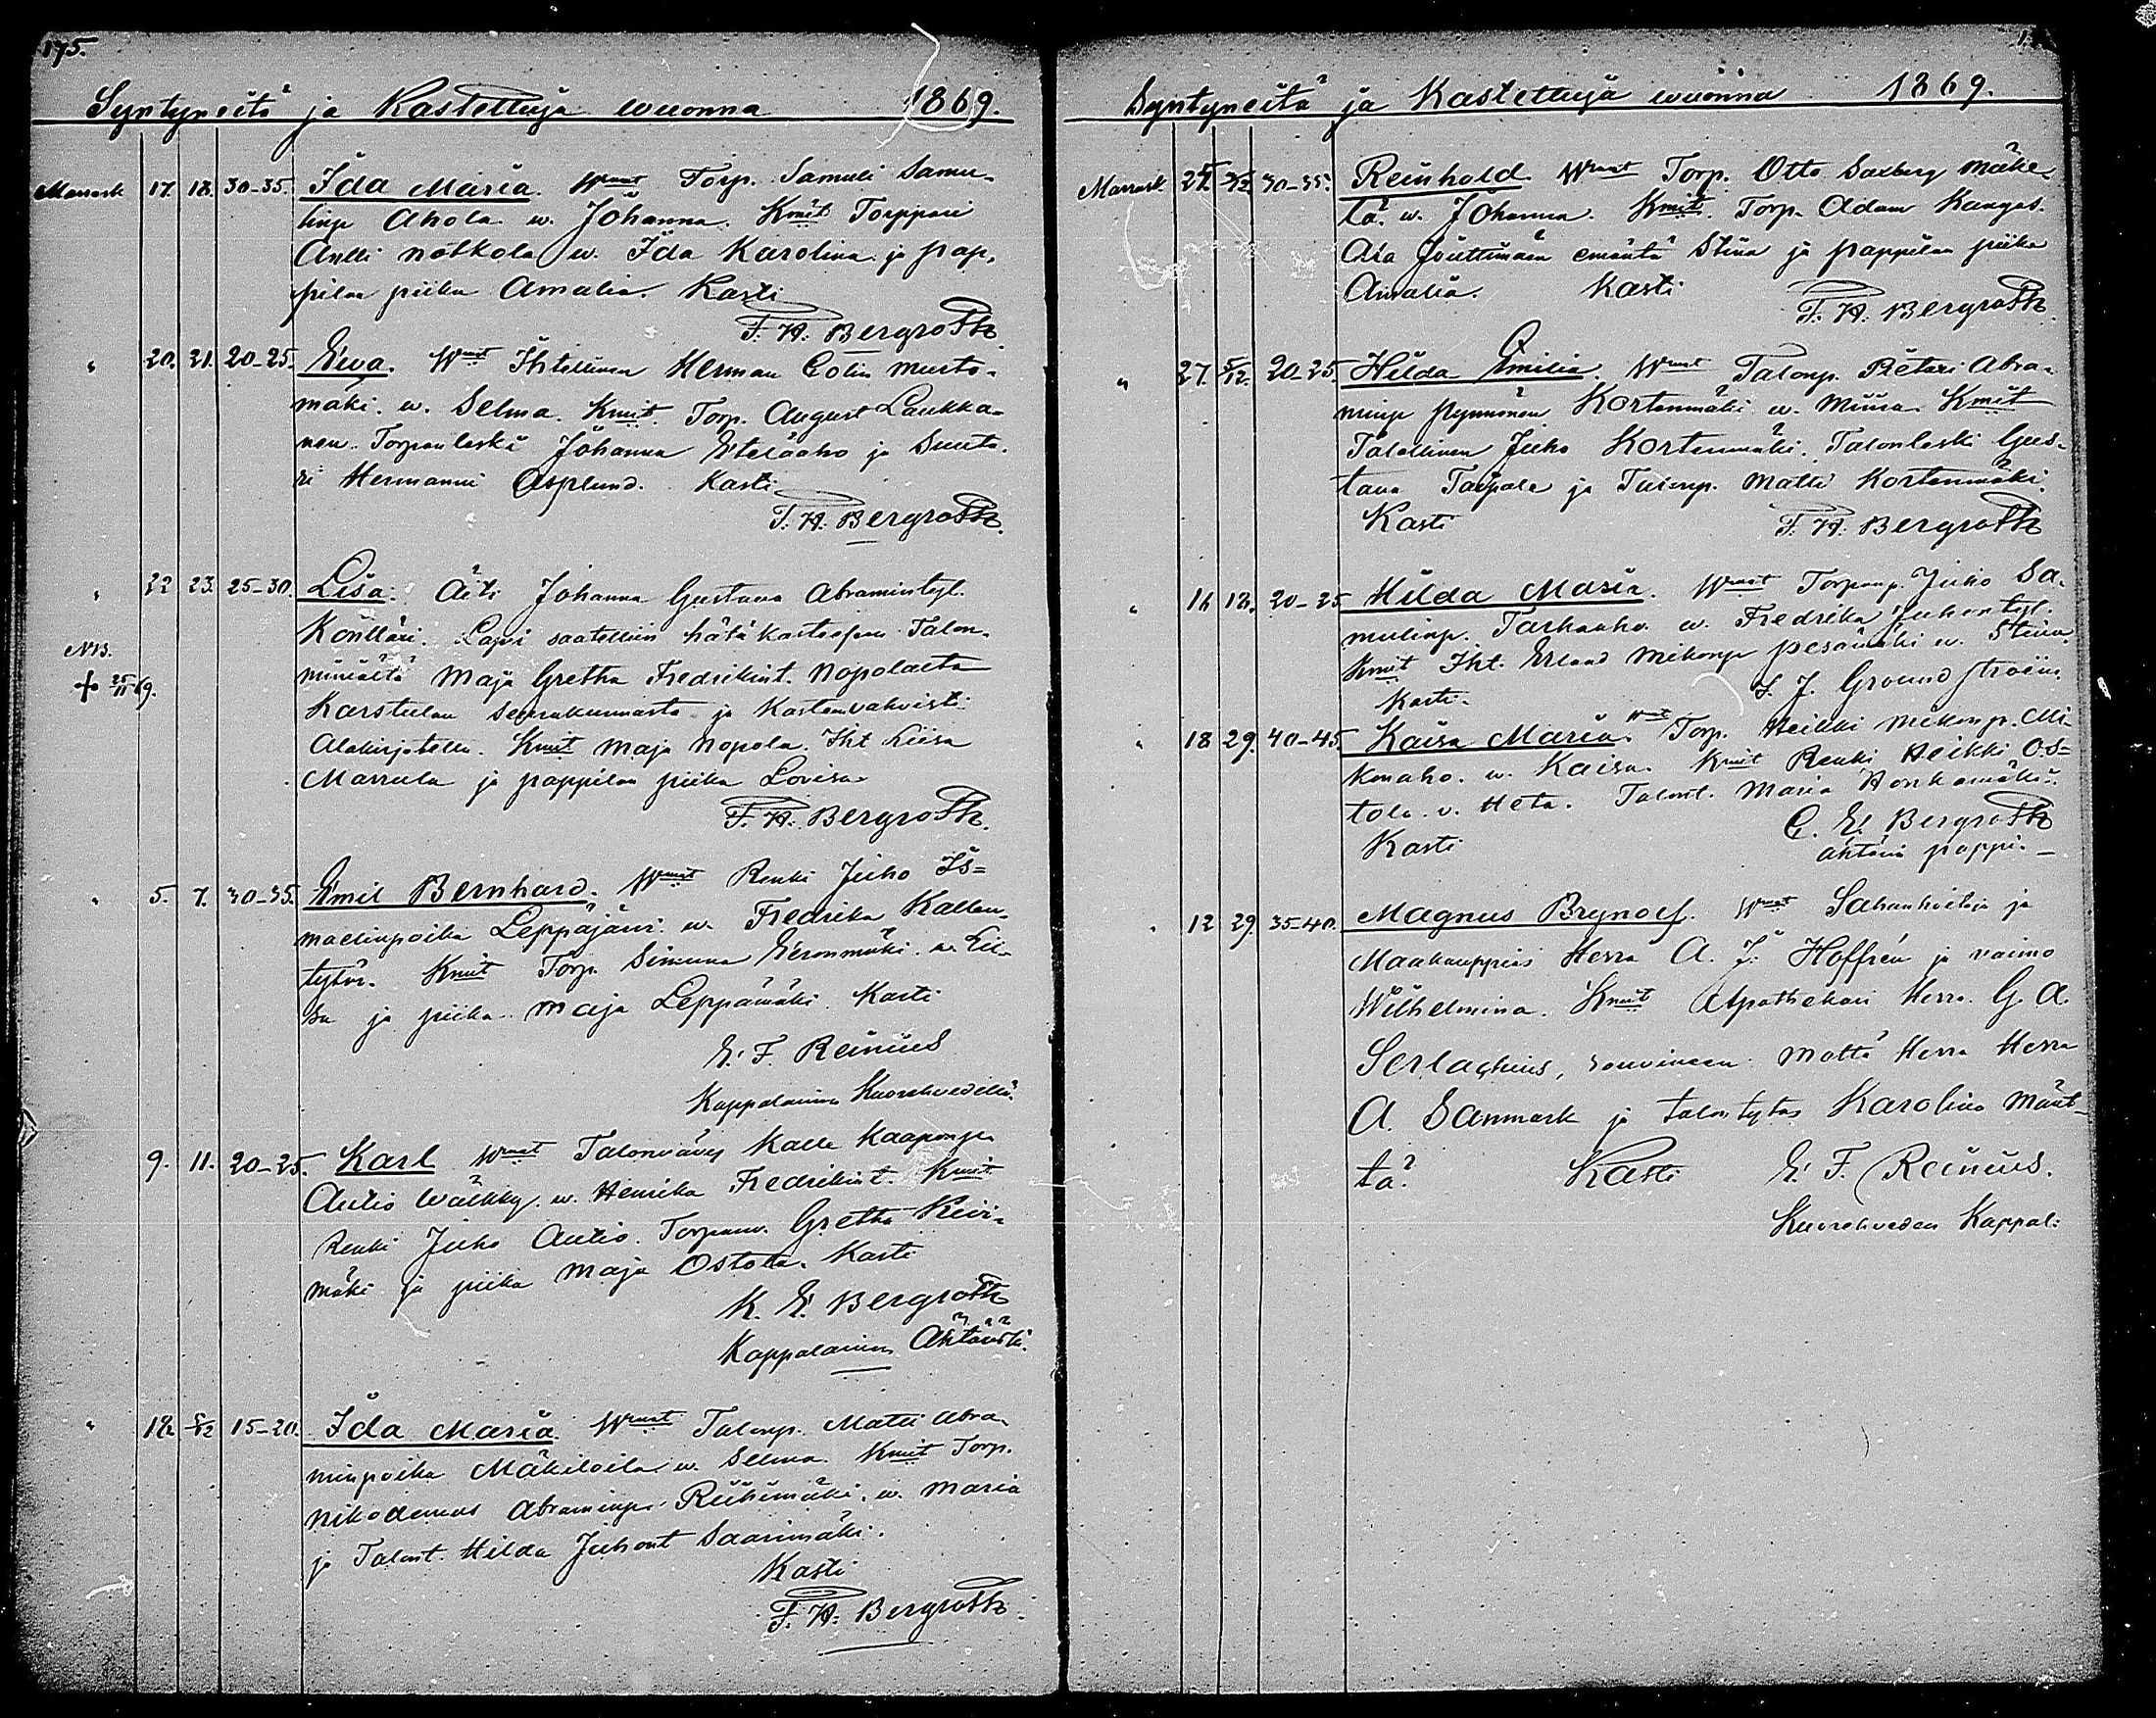 175.
Syntyneitä ja Kastettuja wuonna 1869.
Marrask 17. 18. 30-35. Ida Maria. Wmat Torp. Samuli Samu-
linp Ahola w. Johanna. Kmit Torppari
Antti nötkola w. Ida Karolina ja pap-
pilan piika Amalia. Kasti
F. H. Bergroth
" 20. 21. 20-25. Ewa. Wmat Ihtellinen Herman Colin musto-
mäki. w. Selma. Kmit. Torp. August Laukka-
nen. Torpanleski Johanna Eteläaho ja Suuta-
ri Hermanni Asplund. Kasti
F. H. Bergroth.
" 22 23. 25-30. Lisa. Äiti Johanna Gustava Abramintyt.
Könttäri. Lapsi saatettiin hätäkasteesen Talon-
NB.
miniältä Maja Gretha Fredrikint. Nopolasta
+ 25/11 69.
Karstulan Seurakunnasta ja Kastenvahvisti
Alakirjotettu. Kmit Maja Nopola. Iht Liisa
Marrula ja pappilan piika Lovisa
F. H. Bergroth.
" 5. 7. 30-35. Emil Bernhard. Wmat Renki Juho Is-
maelinpoika Leppäjärvi. w. Fredrika Kallen-
tytär. Kmit Torp. Simuna Eeronmäki. w. Lii-
sa ja piika Maja Leppämäki Kasti
E. F. Reinius
Kappalainen Kuorehvedellä.
9. 11. 20-25. Karl Wmat Talonvävy Kalle Kaaponp.
Autio Wälkky. w. Henrika Fredrikint. Kmit
Renki Juho Autio. Torpanw. Gretha Kivi-
mäki ja piika Maja Ostola. Kasti
K. E. Bergroth
Kappalainen Ähtäristä.
" 18. 5/12 15-20. Ida Maria. Wmat Talonp. Matti Abra-
minpoika Mäkiloila w. Selma. Kmit Torp.
Nikodemus Abraminp. Riihimäki. w. Maria
ja Talont. Hilda Juhont Saarimäki.
Kasti
F. H. Bergroth.
Syntyneitä ja Kastettuja wuonna 1869.
Marrask 24. 5/12 30-35. Reinhold. Wmat Torp. Otto Saxberg Mäke-
lä. w. Johanna. Kmit. Torp. Adam Kangas-
Aia Jouttimäen emäntä Stina ja pappilan piika
Amalia. Kasti
F. H. Bergroth.
" 27. 5/12. 20-25. Hilda Emilia. Wmat Talonp. Pietari Abra-
minp Pynnönen Kortenmäki w. Miina. Kmit
Talollinen Juho Kortenmäki. Talonleski Gus-
tava Taipale ja Talonp. Matti Kortenmäki.
Kasti F. H. Bergroth
" 16 18. 20-25 Hilda Maria. Wmat Torpanp. Juho Sa-
mulinp. Tarhaaho. w. Fredrika Juhontyt.
Kmit Iht. Erland Mikonp pesämäki w. Stina
Kasti. J. J. Groundstroem.
" 18 29. 40-45. Kaisa Maria. Wmat Torp. Heikki Mikonp. Mi-
konaho. w. Kaisa. Kmit Renki Heikki Os-
tola. v. Heta. Talont. Maria Honkamäki.
Kasti C. E. Bergroth
ähtärin pappi.
" 12 29. 35-40. Magnus Brynolf. Wmat Sahanhoitaja ja
Maakauppias Herra A. J. Hoffrén ja vaimo
Wilhelmina. Kmit Apothekari Herra G. A.
Serlachius, rouvineen Mattä Herra Herra
A. Sanmark ja talontytär Karolina Mänt-
tä. Kasti E. F. Reinius.
Kuorehveden Kappal: